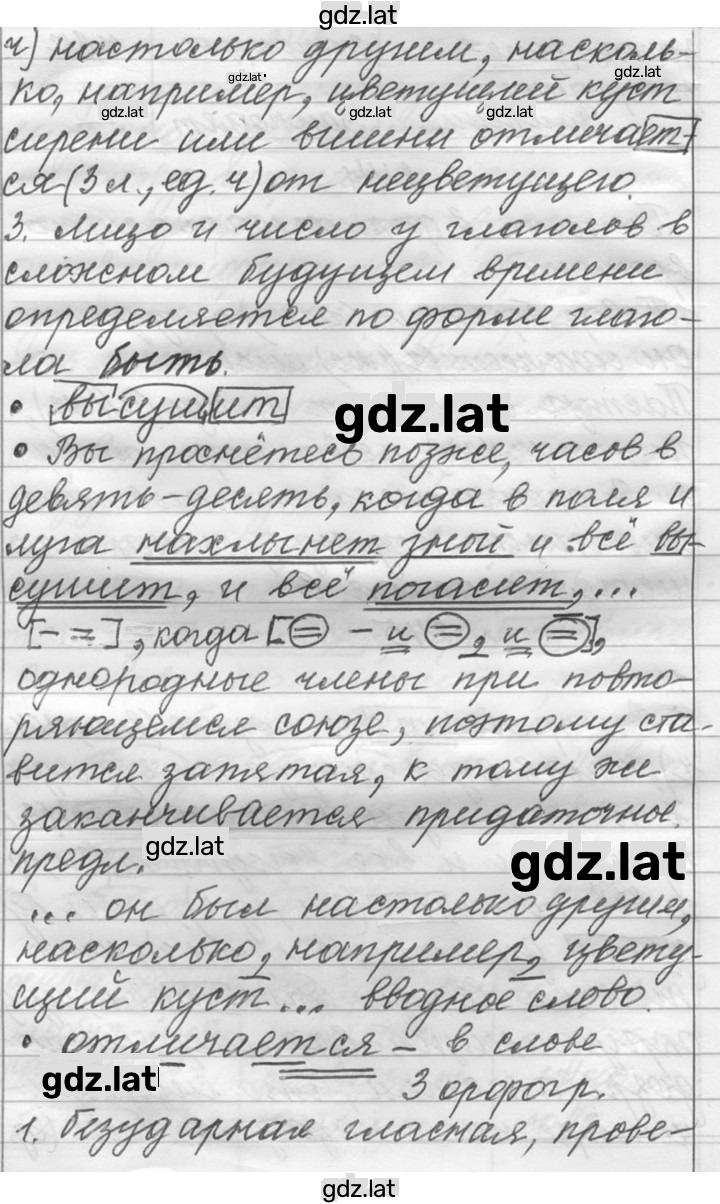 gdz.lat
ч) настолько другим, насколь-
gdz.lat
gdz.lat
ко, например, цветущий куст
gdz.lat gdz.lat gdz.lat
сирени или вишни отличает-
ся (3 л., ед. ч) от нецветущего.
3. Лицо и число у глаголов в
сложном будущем времени
определяется по форме глаго-
ла быть.
• высушит
gdz.lat
• Вы проснётесь позже, часов в
девять-десять, когда в поля и
луга нахлынет зной и всё вы-
сушит, и всё погасит, ...
[- =], когда [= - и =, и =],
однородные члены при повто-
ряющемся союзе, поэтому ста-
вится запятая, к тому же
заканчивается придаточное
gdz.lat
предл.
gdz.lat
... он был настолько другим,
насколько, например, цвету-
щий куст... вводное слово.
• отличается - в слове
gdz.lat
3 орфогр.
1. безударная гласная, прове-
gdz.lat